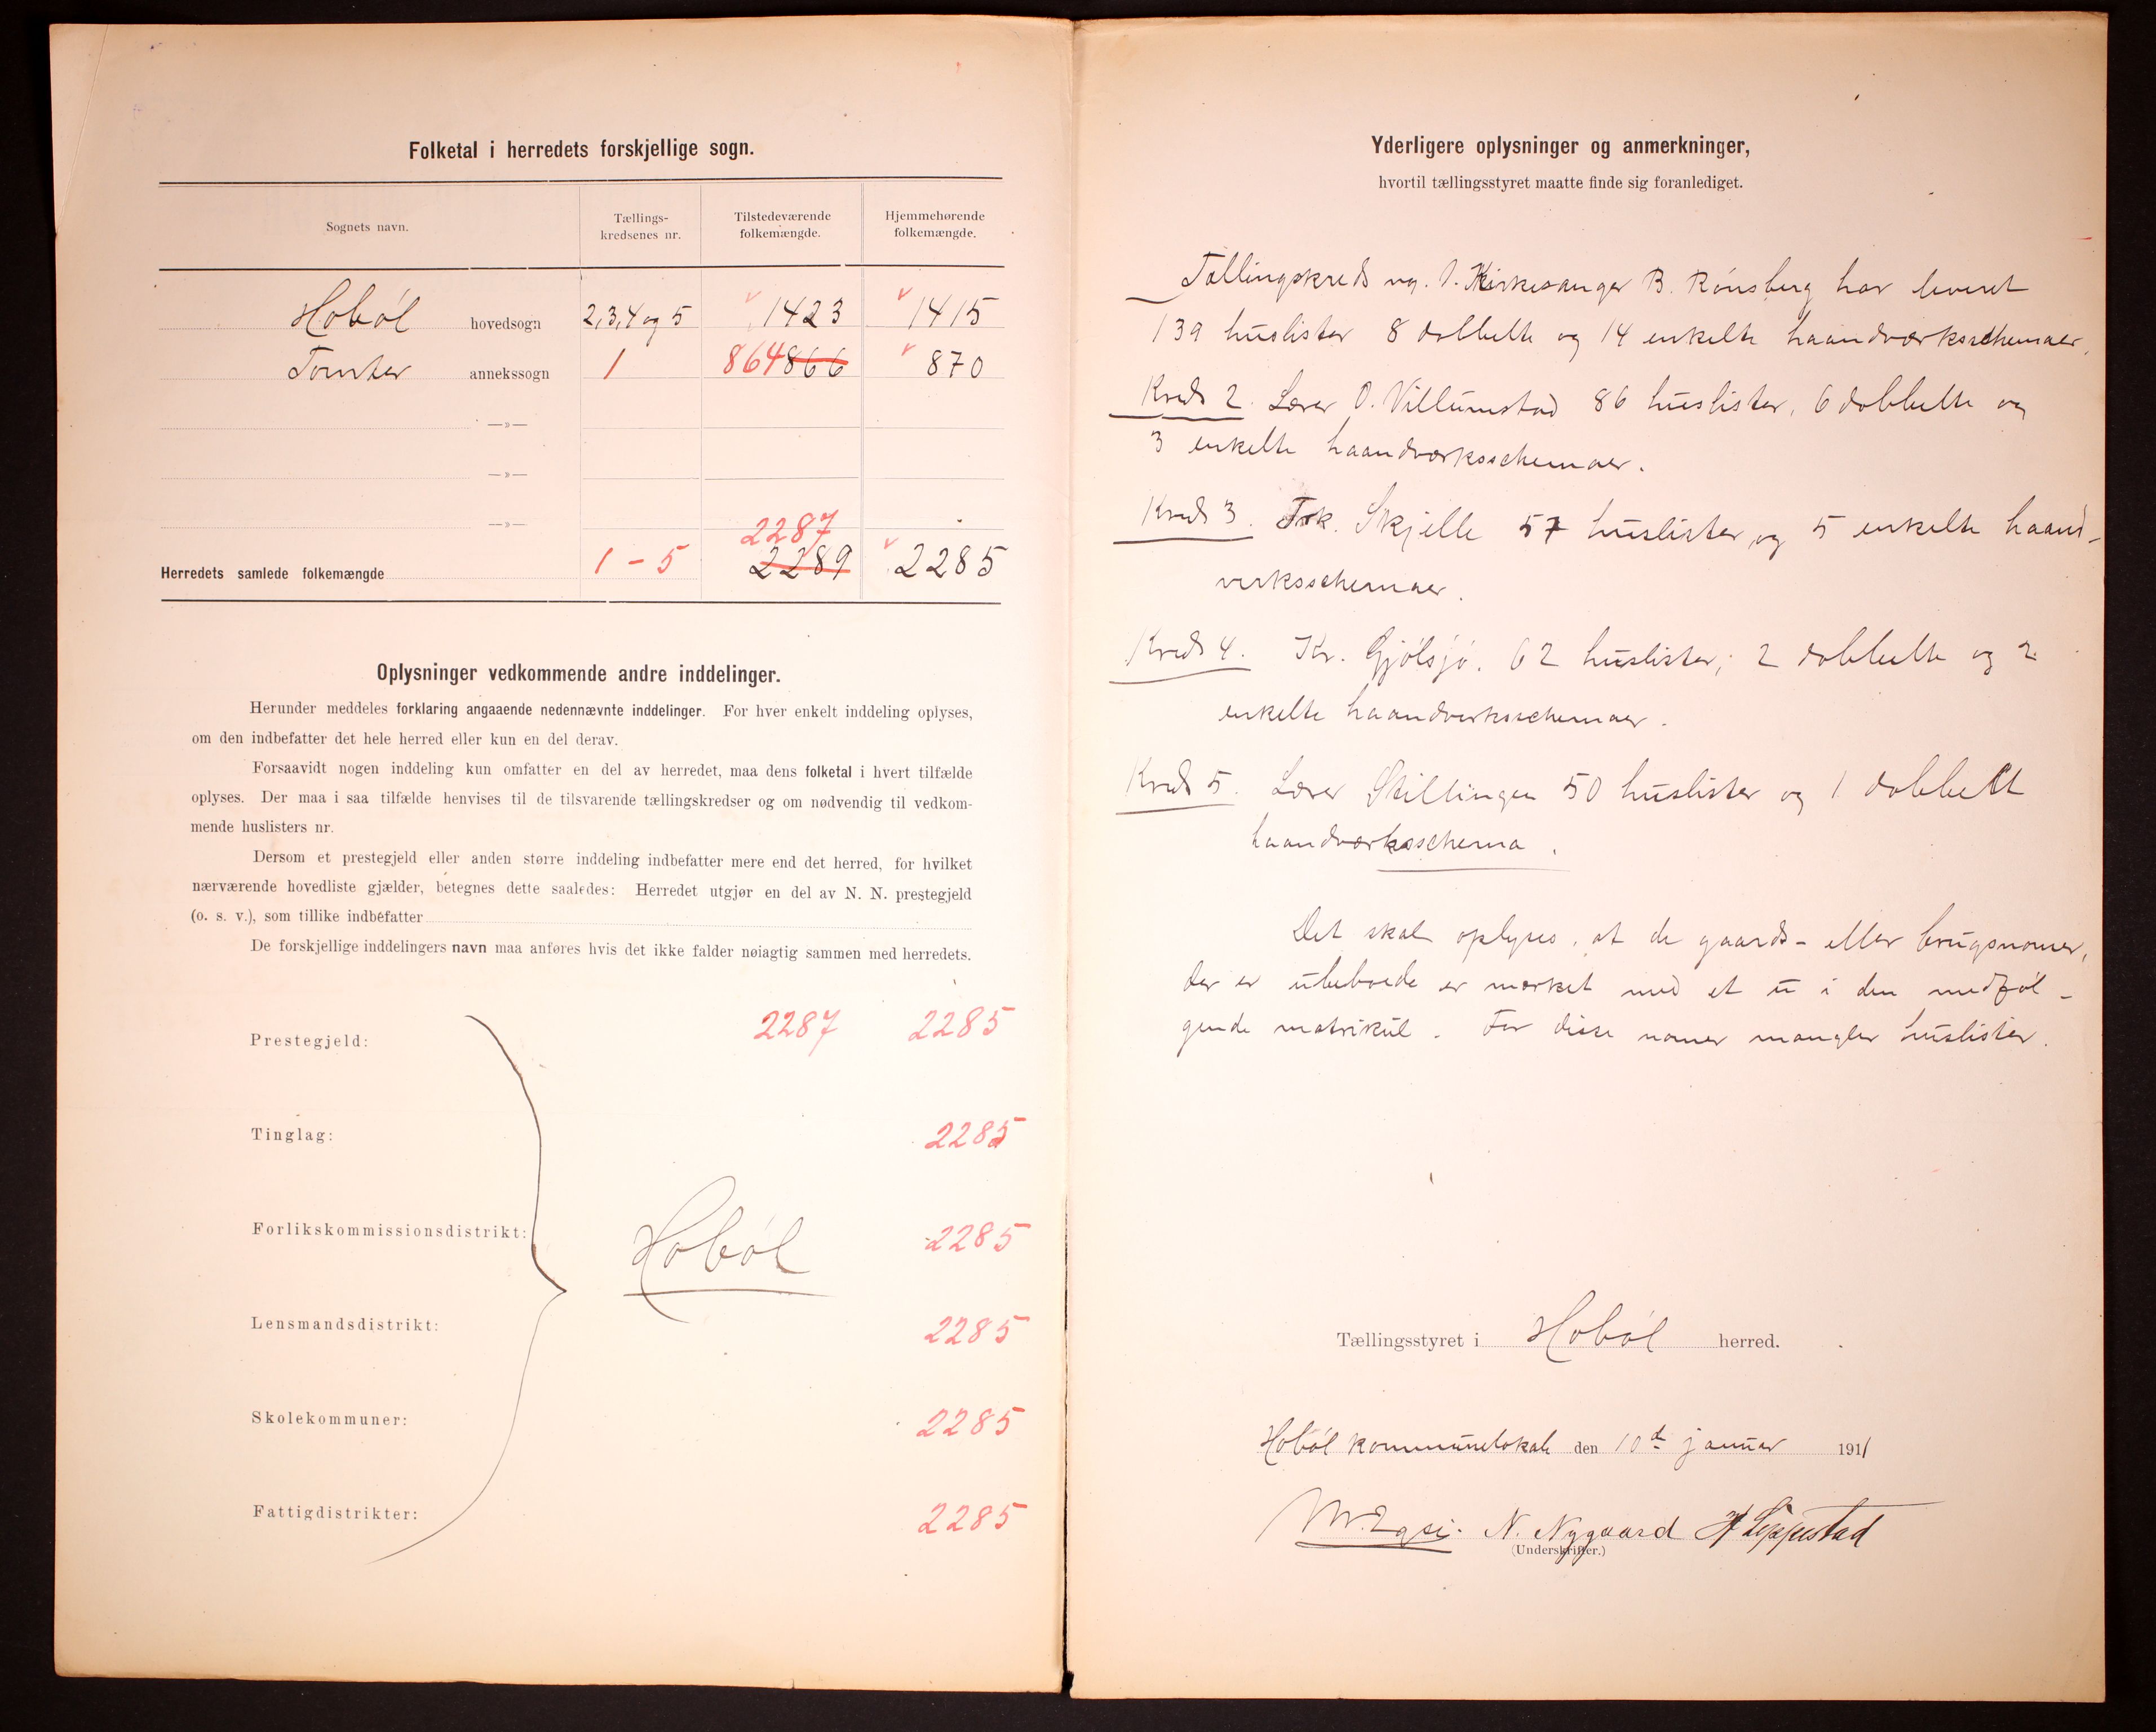 Folketal i herredets forskjellige sogn.
Sognets navn.
Tællings-
kredsenes nr.
Tilstedeværende
folkemængde.
Hjemmehørende
folkemængde.
Hoböl hovedsogn 2,3,4 og 5 1423 1415
Tomter annekssogn 1 864 866 870
—»—
—»—
—»—
2287
Herredets samlede folkemængde 1 - 5 2289 2285
Oplysninger vedkommende andre inddelinger.
Herunder meddeles forklaring angaaende nedennævnte inddelinger. For hver enkelt inddeling oplyses,
om den indbefatter det hele herred eller kun en del derav.
Forsaavidt nogen inddeling kun omfatter en del av herredet, maa dens folketal i hvert tilfælde
oplyses. Der maa i saa tilfælde henvises til de tilsvarende tællingskredser og om nødvendig til vedkom-
mende huslisters nr.
Dersom et prestegjeld eller anden større inddeling indbefatter mere end det herred, for hvilket
nærværende hovedliste gjælder, betegnes dette saaledes: Herredet utgjør en del av N. N. prestegjeld
(o. s. v.), som tillike indbefatter
De forskjellige inddelingers navn maa anføres hvis det ikke falder nøiagtig sammen med herredets.
Prestegjeld: 2287 2285
Tinglag: 2285
Forlikskommissionsdistrikt: 2285
Hoböl
Lensmandsdistrikt: 2285
Skolekommuner: 2285
Fattigdistrikter: 2285
Yderligere oplysninger og anmerkninger,
hvortil tællingsstyret maatte finde sig foranlediget.
Tællingskreds no. 1. Kirkesanger B. Rönsberg har leveret
139 huslister 8 dobbelte og 14 enkelte haandværksschemaer.
Kreds 2. Lærer O. Villumstad 86 huslister, 6 dobbelte og
3 enkelte haandværksschemaer.
Kreds 3. Frk. Skjelle 57 huslister og 5 enkelte haand-
verksschemaer.
Kreds 4. Kr. Gjölsjö. 62 huslister; 2 dobbelte og 2
enkelte haandverksschemaer.
Kreds 5. Lærer Stillingen 50 huslister og 1 dobbelt
haandværksschema.
Det skal oplyses, at de gaards- eller brugsnomer,
der er ubeboede er mærket med et u i den medföl-
gende matrikul. For disse nomer mangler huslister.
Tællingsstyret i Hoböl herred.
Hoböl kommunelokale den 10de januar 1911
N. Nygaard H Leppestad
(Underskrifter.)